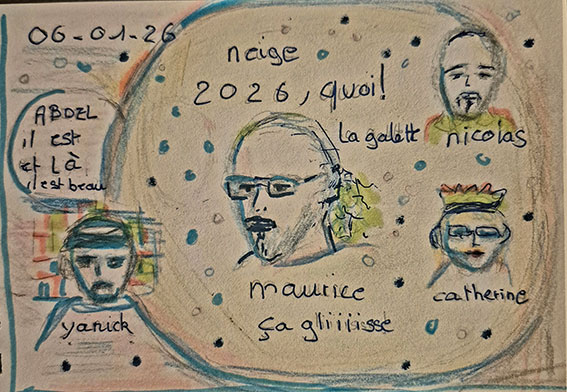 06-01-26
neige
2026, quoi!
ABDEL
il est
et LÀ
il est beau
La galette
nicolas
maurice
ça gliiiiisse
catherine
yanick